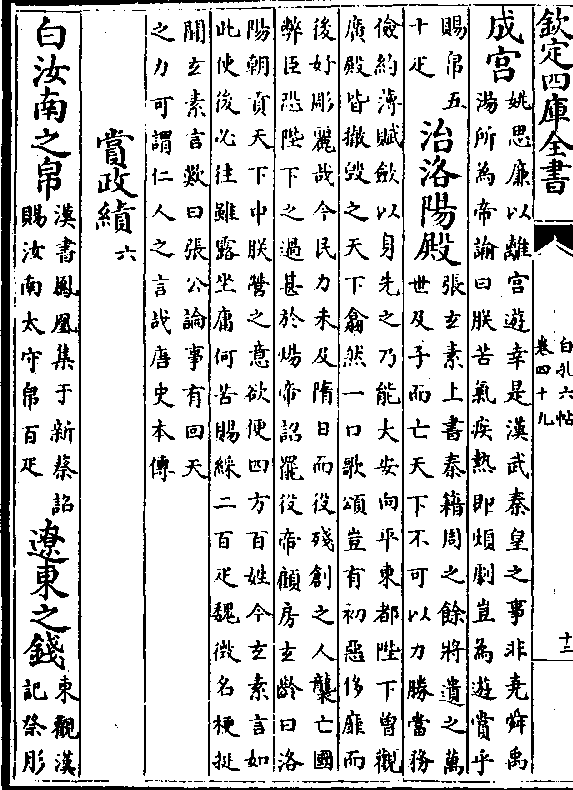 欽定四庫全書
白孔六帖
卷四十九
十三
成宫 姚思廉以離宫遊幸是漢武秦皇之事非堯舜禹
湯所為帝諭曰朕苦氣疾熱即煩劇豈為遊賞乎
賜帛五
十疋 治洛陽殿 張玄素上書秦籍周之餘將遺之萬
世及子而亡天下不可以力勝當務
儉約薄賦斂以身先之乃能大安向平東都陛下曽觀
廣殿皆撤毁之天下翕然一口歌頌豈有初惡侈靡而
後好彫麗哉今民力未及隋日而役殘創之人襲亡國
弊臣恐陛下之過甚於煬帝詔罷役帝顧房玄齡曰洛
陽朝貢天下中朕營之意欲便四方百姓今玄素言如
此使後必往雖露坐庸何苦賜綵二百疋魏徴名梗挺
聞玄素言歎曰張公論事有回天
之力可謂仁人之言哉唐史本傳
賞政績 六
白汝南之帛 漢書鳳凰集于新蔡詔
賜汝南太守帛百疋 遼東之錢 東觀漢
記祭肜